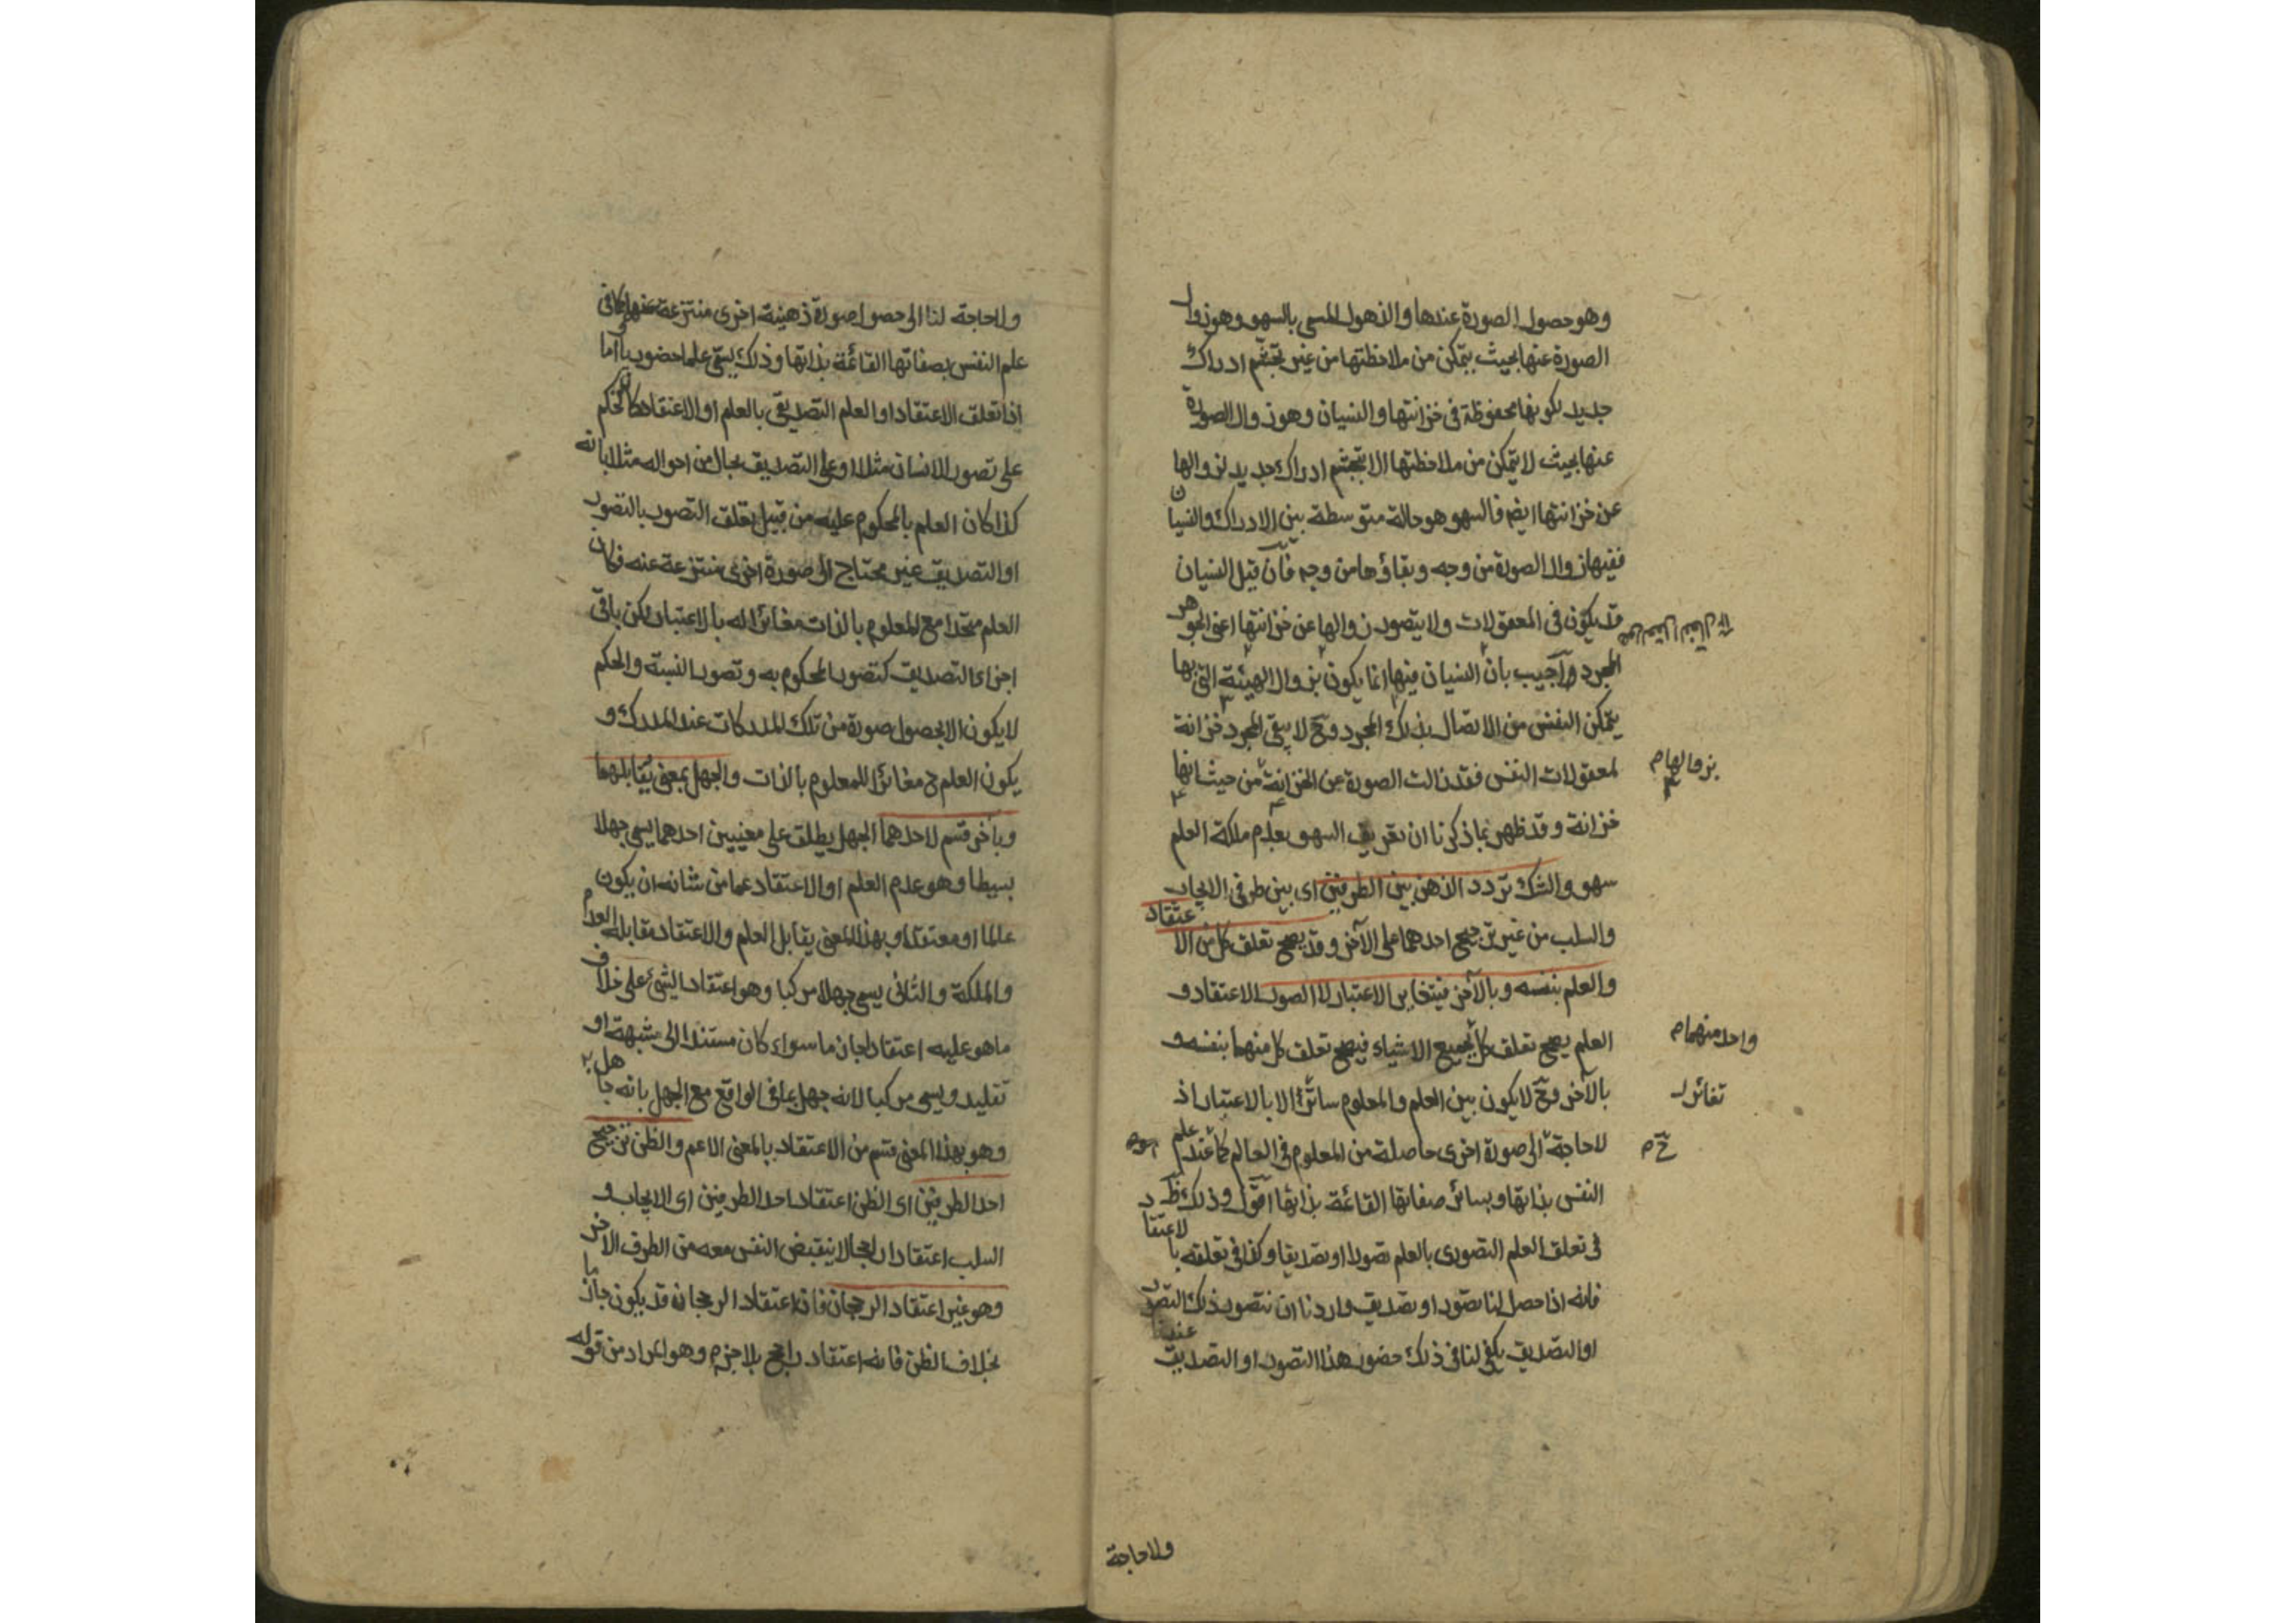 وهو حصول الصورة عندها والذهول المسمى بالسهو وهو زوال
الصورة عنها بحيث يتمكن من ملاحظتها من غير تجشّم ادراك
جديد لكونها محفوظة فى خزانتها والنسيان وهو زوال الصورة
عنها بحيث لا يتمكن من ملاحظتها الا بتجشم ادراك جديد لزوالها
عن خزانتها ايضم فالسهو هو حالة متوسطة بين الادراك والنسيان
ففيها زوال الصورة من وجه وبقاؤها من وجه فان قيل النسيان
قد يكون فى المعقولات ولا يتصور زوالها عن خزانتها اعنى الجوهر
المجرد واجيب بان النسيان فيها انما يكون بزوال الهيئة التى بها
يتمكن النفس من الاتصال بذلك المجرد وح لا يبقى المجرد خزانة
بزوالها م
لمعقولات النفس فقد زالت الصورة عن الخزانة من حيث انها
خزانة وقد ظهر بما ذكرنا ان تعريف السهو بعدم ملكة العلم
سهو والشك تردد الذهن بين الطرفين اى بين طرفى الايجاب
والسلب من غير ترجيح احدهما على الآخر وقد يصح تعلق كل من الاعتقاد
والعلم بنفسه وبالآخر فيتغاير الاعتبار لا الصور الاعتقاد و
واحد منهما م
العلم يصح تعلق كل بجميع الاشياء فيصح تعلق كل منهما بنفسه و
تغائر
بالآخر وح لا يكون بين العلم والمعلوم الا بالاعتبار اذ
ح م
لا حاجة الى صورة اخرى حاصلة من المعلوم فى العالم كما عند علم
النفس بذاتها وبسائر صفاتها القائمة بذاتها اقول وذلك ظ
فى تعلق العلم التصورى بالعلم تصورا او تصديقا وكذا فى تعلقه بالاعتقاد
فانه اذا حصل لنا تصور او تصديق واردنا ان نتصور ذلك التصور
او التصديق يكفى لنا فى ذلك حضور هذا التصور او التصديق عندنا
ولا حاجة
ولا حاجة لنا الى حصول صورة ذهنية اخرى منتزعة عنها كما فى
علم النفس بصفاتها القائمة بذاتها وذلك يسمى علما حضوريا اما
اذا تعلق الاعتقاد او العلم التصديقى بالعلم او الاعتقاد كالحكم
على تصور الانسان مثلا او على التصديق بحال من احواله مثلا بانه
كذا كان العلم بالمحكوم عليه من قبيل تعلق التصور بالتصور
او التصديق غير محتاج الى صورة اخرى منتزعة عنه فكان
العلم متحدا مع المعلوم بالذات مغائرا له بالاعتبار لكن باقى
اجزاء التصديق كتصور المحكوم به وتصور النسبة والحكم
لا يكون الا بحصول صورة من تلك المدركات عند المدرك و
يكون العلم ح مغائرا للمعلوم بالذات والجهل بمعنى يقابلهما
وبآخر قسم لاحدهما الجهل يطلق على معنيين احدهما يسمى جهلا
بسيطا وهو عدم العلم او الاعتقاد عما من شانه ان يكون
عالما او معتقدا وبهذا المعنى يقابل العلم والاعتقاد مقابلة العدم
والملكة والثانى يسمى جهلا مركبا وهو اعتقاد الشئ على خلاف
ما هو عليه اعتقادا جازما سواء كان مستندا الى شبهة او
تقليد ويسمى مركبا لانه جهل بما فى الواقع مع الجهل بانه جاهل به
وهو بهذا المعنى قسم من الاعتقاد بالمعنى الاعم والظن ترجيح
احد الطرفين اى الظن اعتقاد احد الطرفين اى الايجاب و
السلب اعتقادا راجحا لا ينقبض النفس معه من الطرف الآخر
وهو غير اعتقاد الرجحان فان اعتقاد الرجحان قد يكون جازما
بخلاف الظن فانه اعتقاد راجح بلا جزم وهو المراد من قوله